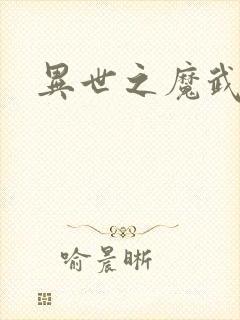 異世之魔武
喻晨晰